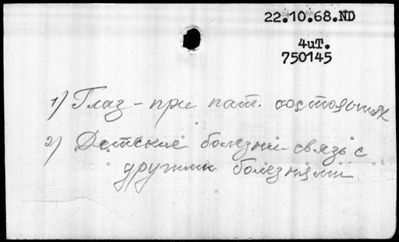 22.10.68.ND
4иT.
750145
1) Глаз - при пат. состояниях
2) Детские болезни-связь с
другими болезнями